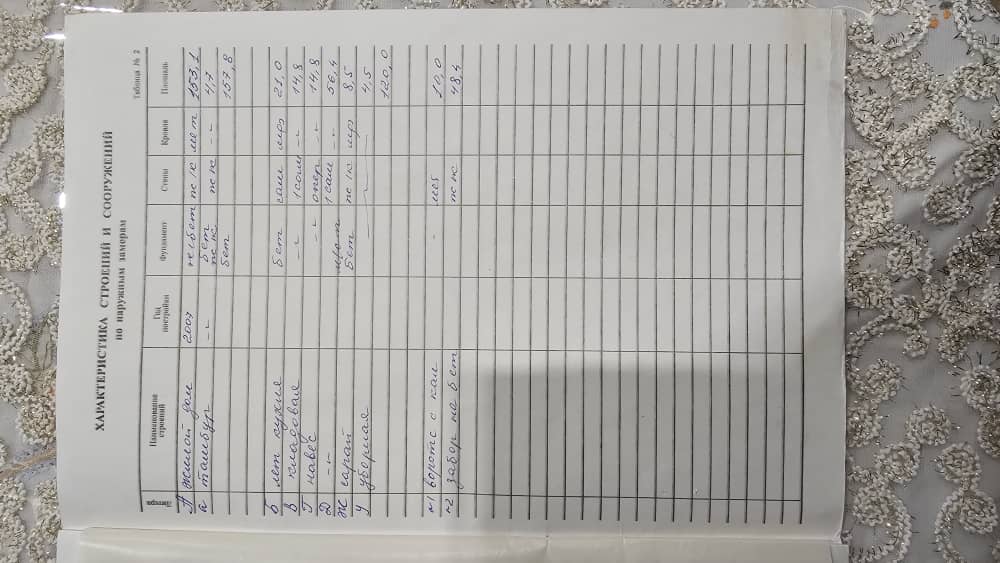 ХАРАКТЕРИСТИКА СТРОЕНИЙ И СООРУЖЕНИЙ
по наружным замерам
Таблица № 2
Литера Наименование строений Год постройки Фундамент Стены Кровля Площадь
А жилой дом 2007 бет ж/к мет 153,1
а тамбур -"- бет жж -"- 4,7
бет 157,8
Б лет кухня бет сам шиф 21,0
В кладовая -"- 1 сам -"- 14,8
Г навес -"- опер -"- 14,8
Д -"- 1 сам -"- 56,4
Ж сарай бет ж/к шиф 8,5
У уборная 4,5
120,0
n1 ворота с кал - 10,0
n2 забор на бет 48,4